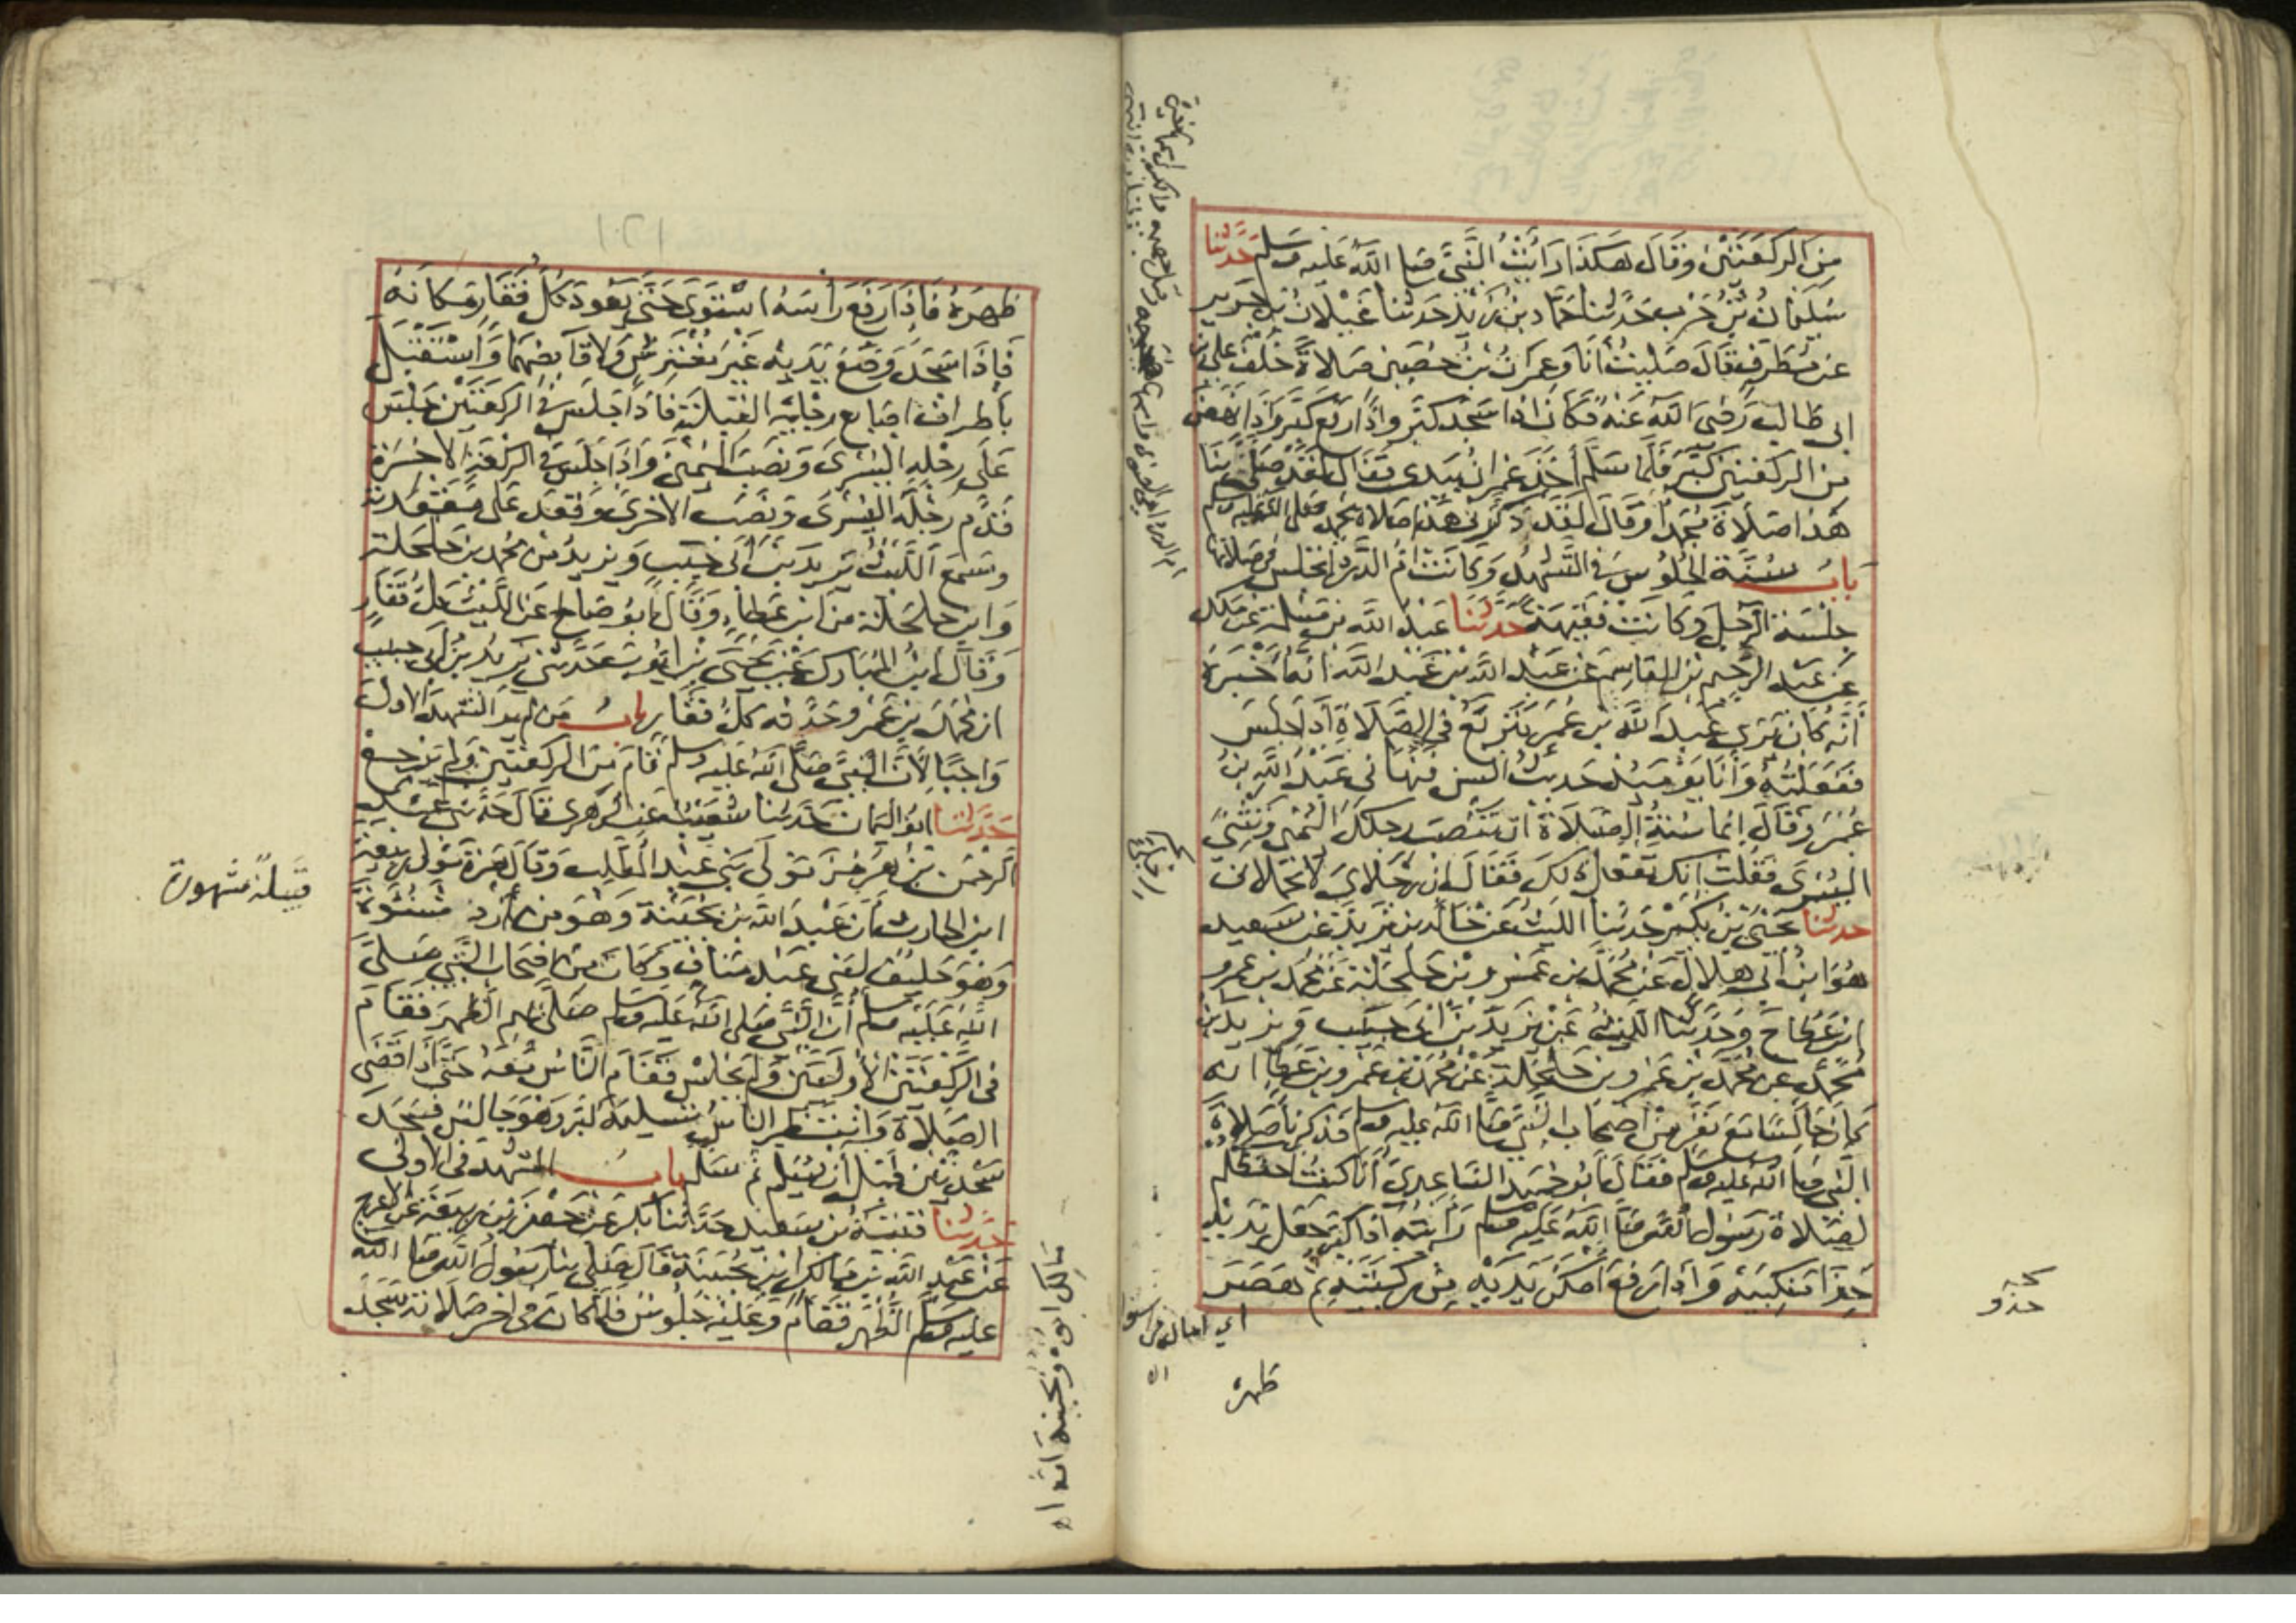 من الركعتين وقال هكذا رأيت النبي صلى الله عليه وسلم حدثنا
سليمان بن حرب حدثنا حماد بن زيد حدثنا غيلان بن جرير
عن مطرف قال صليت أنا وعمران بن حصين صلاة خلف علي بن
ابي طالب رضي الله عنه فكان اذا سجد كبر واذا رفع كبر واذا نهض
من الركعتين كبر فلما سلم أخذ عمران بيدي فقال لقد صلى بنا
هذا صلاة محمد او قال لقد ذكرني هذا صلاة محمد صلى الله عليه وسلم
باب سنة الجلوس في التشهد وكانت ام الدرداء تجلس في صلاتها
جلسة الرجل وكانت فقيهة حدثنا عبد الله بن مسلمة عن مالك
عن عبد الرحمن بن القاسم عن عبد الله بن عبد الله انه أخبره
أنه كان يرى عبد الله بن عمر يتربع في الصلاة اذا جلس
ففعلته وأنا يومئذ حديث السن فنهاني عبد الله بن
عمر وقال انما سنة الصلاة ان تنصب رجلك اليمنى وتثني
اليسرى فقلت انك تفعل ذلك فقال ان رجلاي لا تحملاني
حدثنا يحيى بن بكير حدثنا الليث عن خالد بن يزيد عن سعيد
هو ابن أبي هلال عن محمد بن عمرو بن حلحلة عن محمد بن عمرو
ابن عطا ح وحدثنا الليث عن يزيد بن أبي حبيب ويزيد بن
محمد عن محمد بن عمرو بن حلحلة عن محمد بن عمرو بن عطا انه
كان جالسا مع نفر من اصحاب النبي صلى الله عليه وسلم فذكرنا صلاة
النبي صلى الله عليه وسلم فقال أبو حميد الساعدي أنا كنت احفظكم
لصلاة رسول الله صلى الله عليه وسلم رأيته اذا كبر جعل يديه
حذا منكبيه واذا ركع أمكن يديه من ركبتيه ثم هصر
ظهره
حذو
ظهره فاذا رفع رأسه استوى حتى يعود كل فقار مكانه
فاذا سجد وضع يديه غير مفترش ولا قابضهما واستقبل
باطراف اصابع رجليه القبلة فاذا جلس في الركعتين جلس
على رجله اليسرى ونصب اليمنى واذا جلس في الركعة الاخرة
قدم رجله اليسرى ونصب الاخرى وقعد على مقعدته
وسمع الليث يزيد بن أبي حبيب ويزيد من محمد بن حلحلة
وابن حلحلة من ابن عطاء وقال أبو صالح عن الليث كل فقار
وقال ابن المبارك عن يحيى بن ايوب حدثني يزيد بن أبي حبيب
ان محمد بن عمرو حدثه كل فقار باب من لم ير التشهد الاول
واجبا لأن النبي صلى الله عليه وسلم قام من الركعتين ولم يرجع
حدثنا ابو اليمان حدثنا شعيب عن الزهري قال حدثني عبد
الرحمن بن هرمز مولى بني عبد المطلب وقال مرة مولى ربيعة
ابن الحارث أن عبد الله بن بحينة وهو من أزد شنوءة
وهو حليف لبني عبد مناف وكان من اصحاب النبي صلى
الله عليه وسلم أن النبي صلى الله عليه وسلم صلى بهم الظهر فقام
في الركعتين الاوليين ولم يجلس فقام الناس معه حتى اذا قضى
الصلاة وانتظر الناس تسليمه كبر وهو جالس فسجد
سجدتين قبل أن يسلم ثم سلم باب التشهد في الاولى
حدثنا قتيبة بن سعيد حدثنا بكر عن جعفر بن ربيعة عن الاعرج
عن عبد الله بن مالك ابن بحينة قال صلى بنا رسول الله صلى الله
عليه وسلم الظهر فقام وعليه جلوس فلما كان في اخر صلاته سجد
قبيلة مشهورة
مالك ابوه وبحينة امه اه